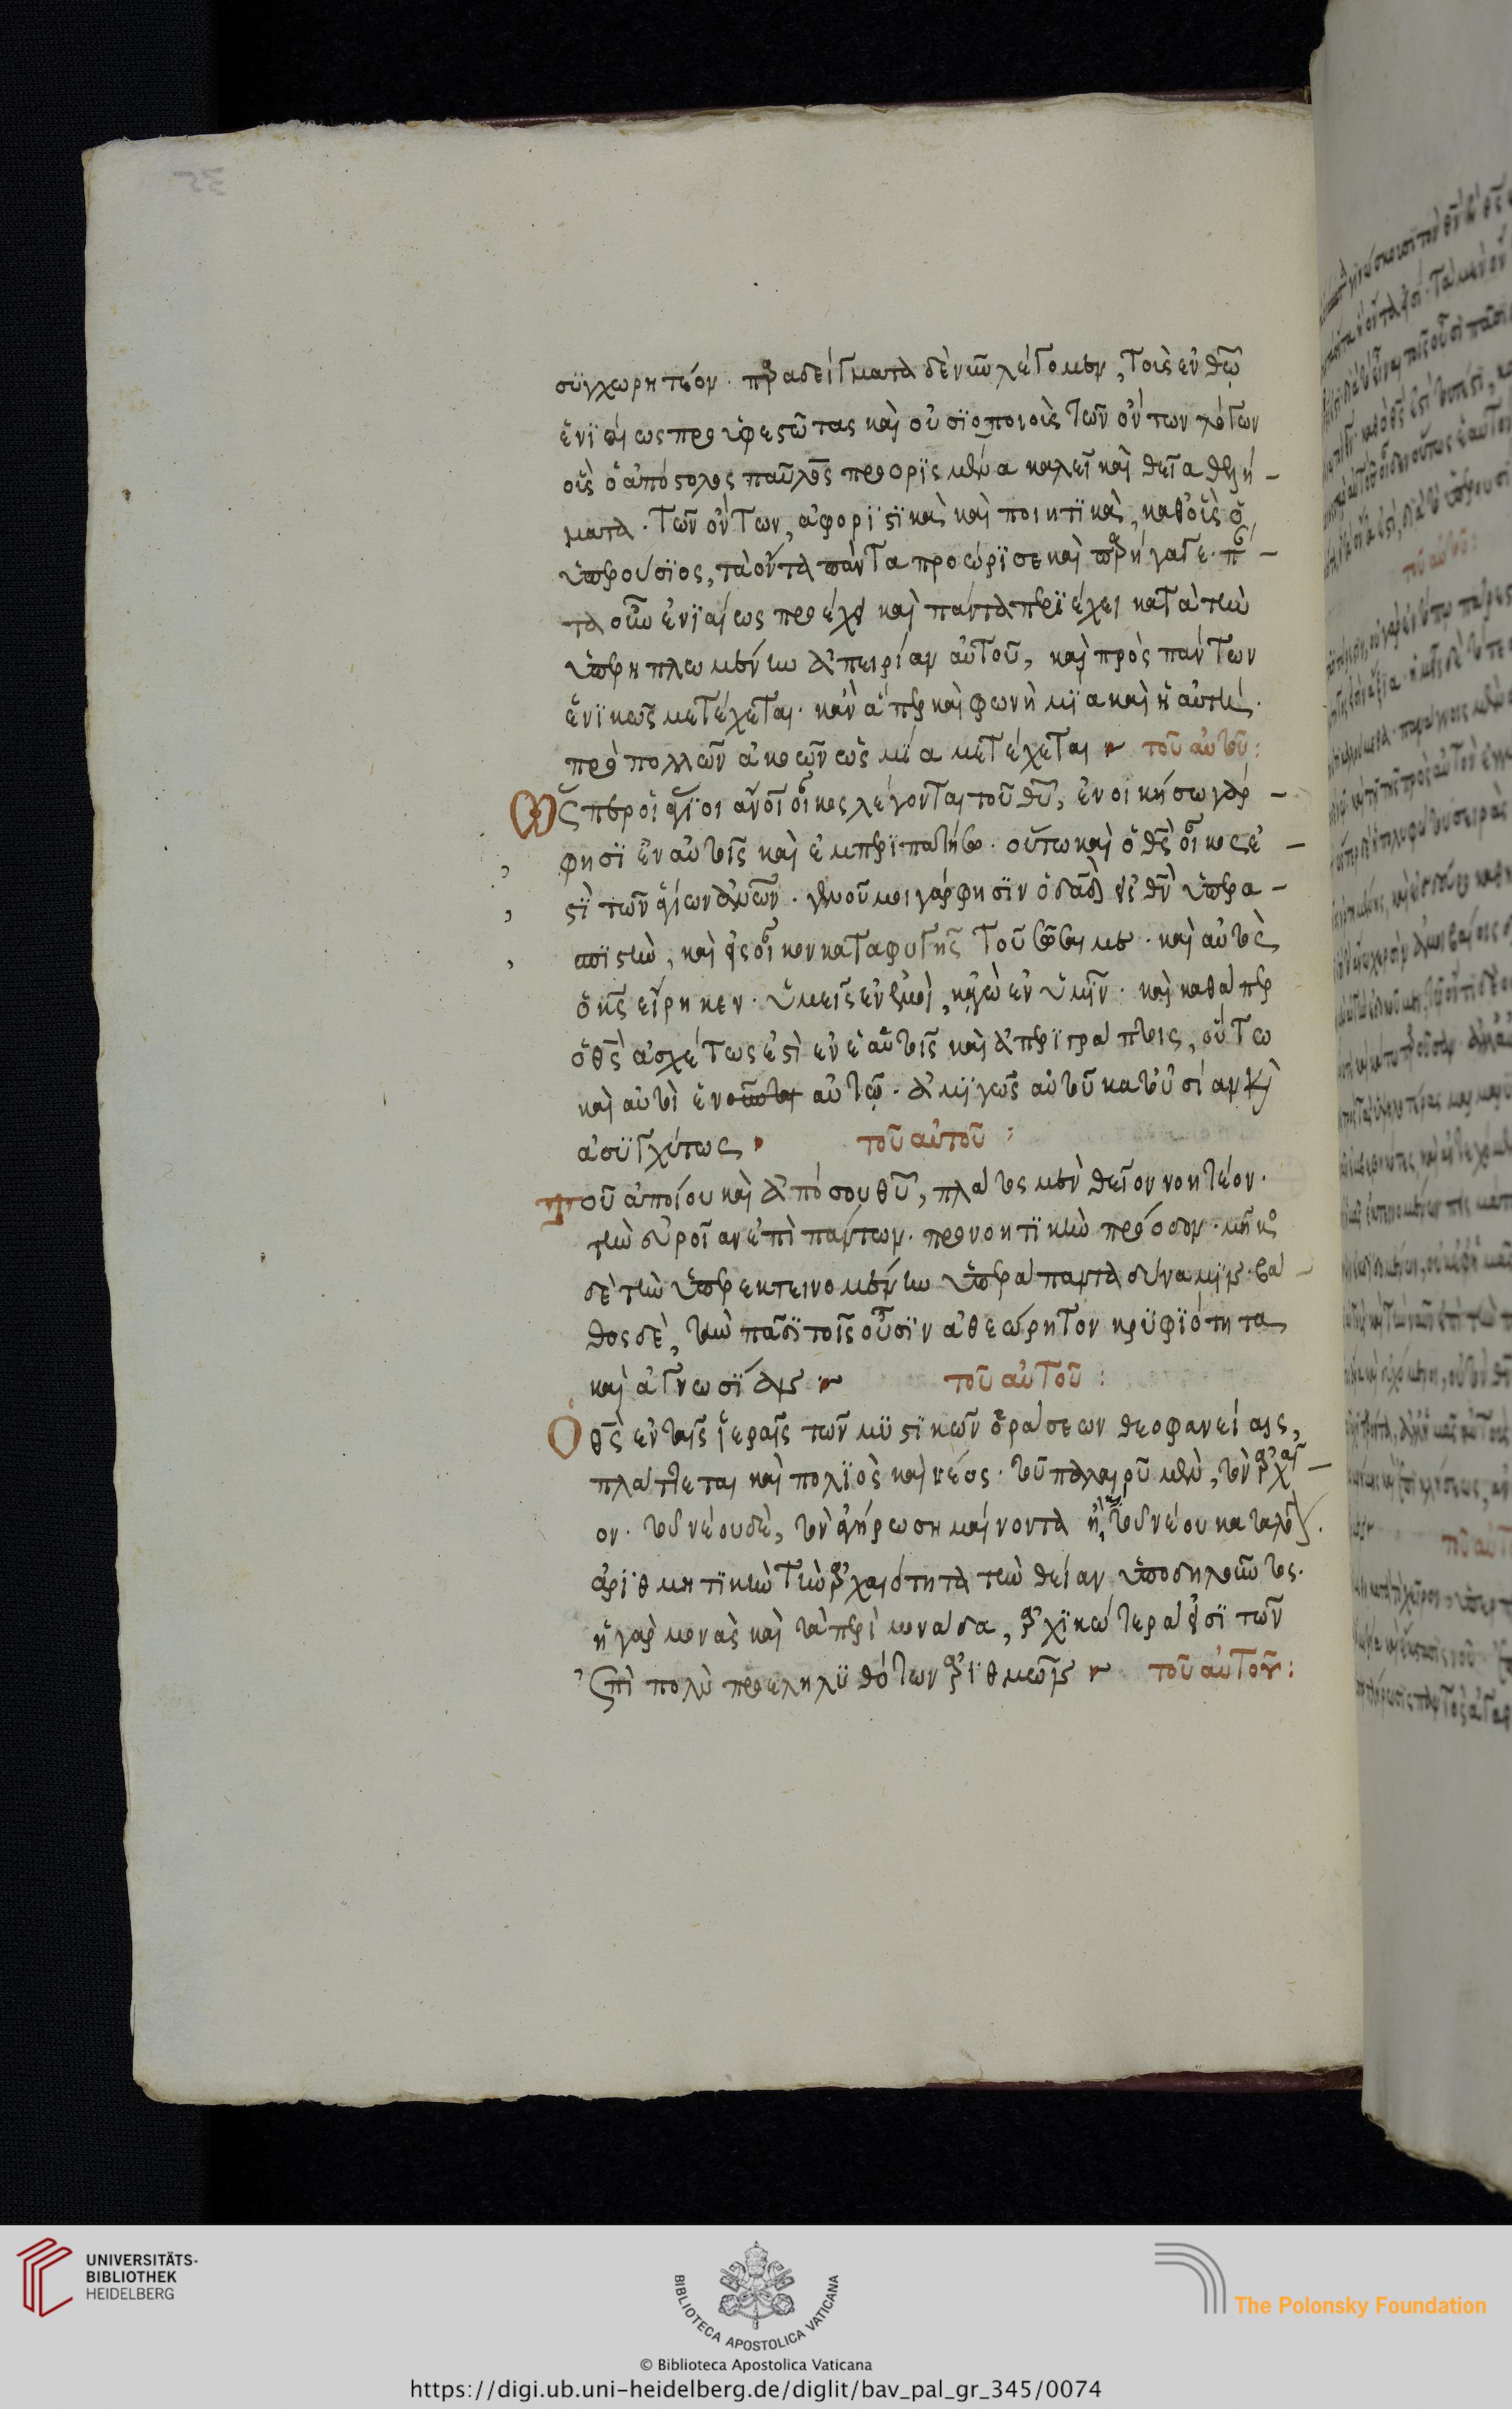 συγχωρητέον. παραδείγματα δὲ νῦν λέγομεν, τοὺς ἐν θῶ
ἑνιαίως προϋφεστῶτας καὶ οὐσιοποιοὺς τῶν ὄντων λόγων
οὓς ὁ ἀπόστολος παῦλος προορισμένα καλεῖ καὶ θεῖα θελή-
ματα. τῶν ὄντων, ἀφοριστικὰ καὶ ποιητικὰ, καθ' οὓς ὁ
ὑπερούσιος, τὰ ὄντα πάντα προώρισε καὶ παρήγαγε. πάν-
τα οὖν ἑνιαίως προέχει καὶ πάντα περιέχει κατὰ τὴν
ὑπερηπλωμένην ἀπειρίαν αὐτοῦ, καὶ πρὸς πάντων
ἑνικῶς μετέχεται. καθάπερ καὶ φωνὴ μία καὶ ἡ αὐτὴ,
πρὸ πολλῶν ἀκοῶν ὡς μία μετέχεται τοῦ αὐτοῦ:
Ὥσπερ οἱ ἅγιοι ἄνοι οἶκος λέγονται τοῦ θῦ, ἐνοικήσω γὰρ -
φησὶ ἐν αὐτοῖς καὶ ἐμπεριπατήσω. οὕτω καὶ ὁ θς οἶκος ἐ -
στὶ τῶν ἁγίων ἀνῶν. γενοῦ μοι γάρ φησιν ὁ δᾶδ εἰς θν ὑπερα -
σπιστὴν, καὶ εἰς οἶκον καταφυγῆς τοῦ σῶσαί με. καὶ αὐτὸς
ὁ κς εἴρηκεν. ὑμεῖς ἐν ἐμοὶ, κἀγὼ ἐν ὑμῖν. καὶ καθάπερ
ὁ θς ἀσχέτως ἐστὶ ἐν ἑαυτοῖς καὶ ἀπεριγράπτοις, οὕτω
καὶ αὐτοὶ ἑνοῦνται αὐτῶ. ἀμιγῶς αὐτοῦ κατ' οὐσίαν καὶ
ἀσυγχύτως τοῦ αὐτοῦ:
Τοῦ ἀποίου καὶ ἀπόσου θῦ, πλάτος μὲν θεῖον νοητέον.
τὴν εὔροιαν ἐπὶ πάντων. προνοητικὴν πρόοδον. μῆκος
δὲ τὴν ὑπερεκτεινομένην ὑπὲρ ἅπαντα δύναμιν. βά -
θος δὲ, τὴν πᾶσι τοῖς οὖσιν ἀθεώρητον κρυφιότητα
καὶ ἀγνωσίαν τοῦ αὐτοῦ:
Ὁ θς ἐν ταῖς ἱεραῖς τῶν μυστικῶν ὁράσεων θεοφανείαις,
πλάττεται καὶ πολιὸς καὶ νέος. τοῦ παλαιοῦ μὲν, τὸν ἀρχαῖ -
ον. τοῦ νέου δὲ, τὸν ἀγήρω σημαίνοντα
ἀριθμητικὴν τὴν ἀρχαιότητα τὴν θείαν ὑποδηλοῦντος.
ἡ γὰρ μονὰς καὶ τὰ περὶ μονάδα, ἀρχικώτερα εἰσὶ τῶν
ἐπὶ πολὺ προεληλυθότων ἀριθμῶν τοῦ αὐτοῦ:
UNIVERSITÄTS-
BIBLIOTHEK
HEIDELBERG
BIBLIOTECA APOSTOLICA VATICANA
The Polonsky Foundation
© Biblioteca Apostolica Vaticana
https://digi.ub.uni-heidelberg.de/diglit/bav_pal_gr_345/0074